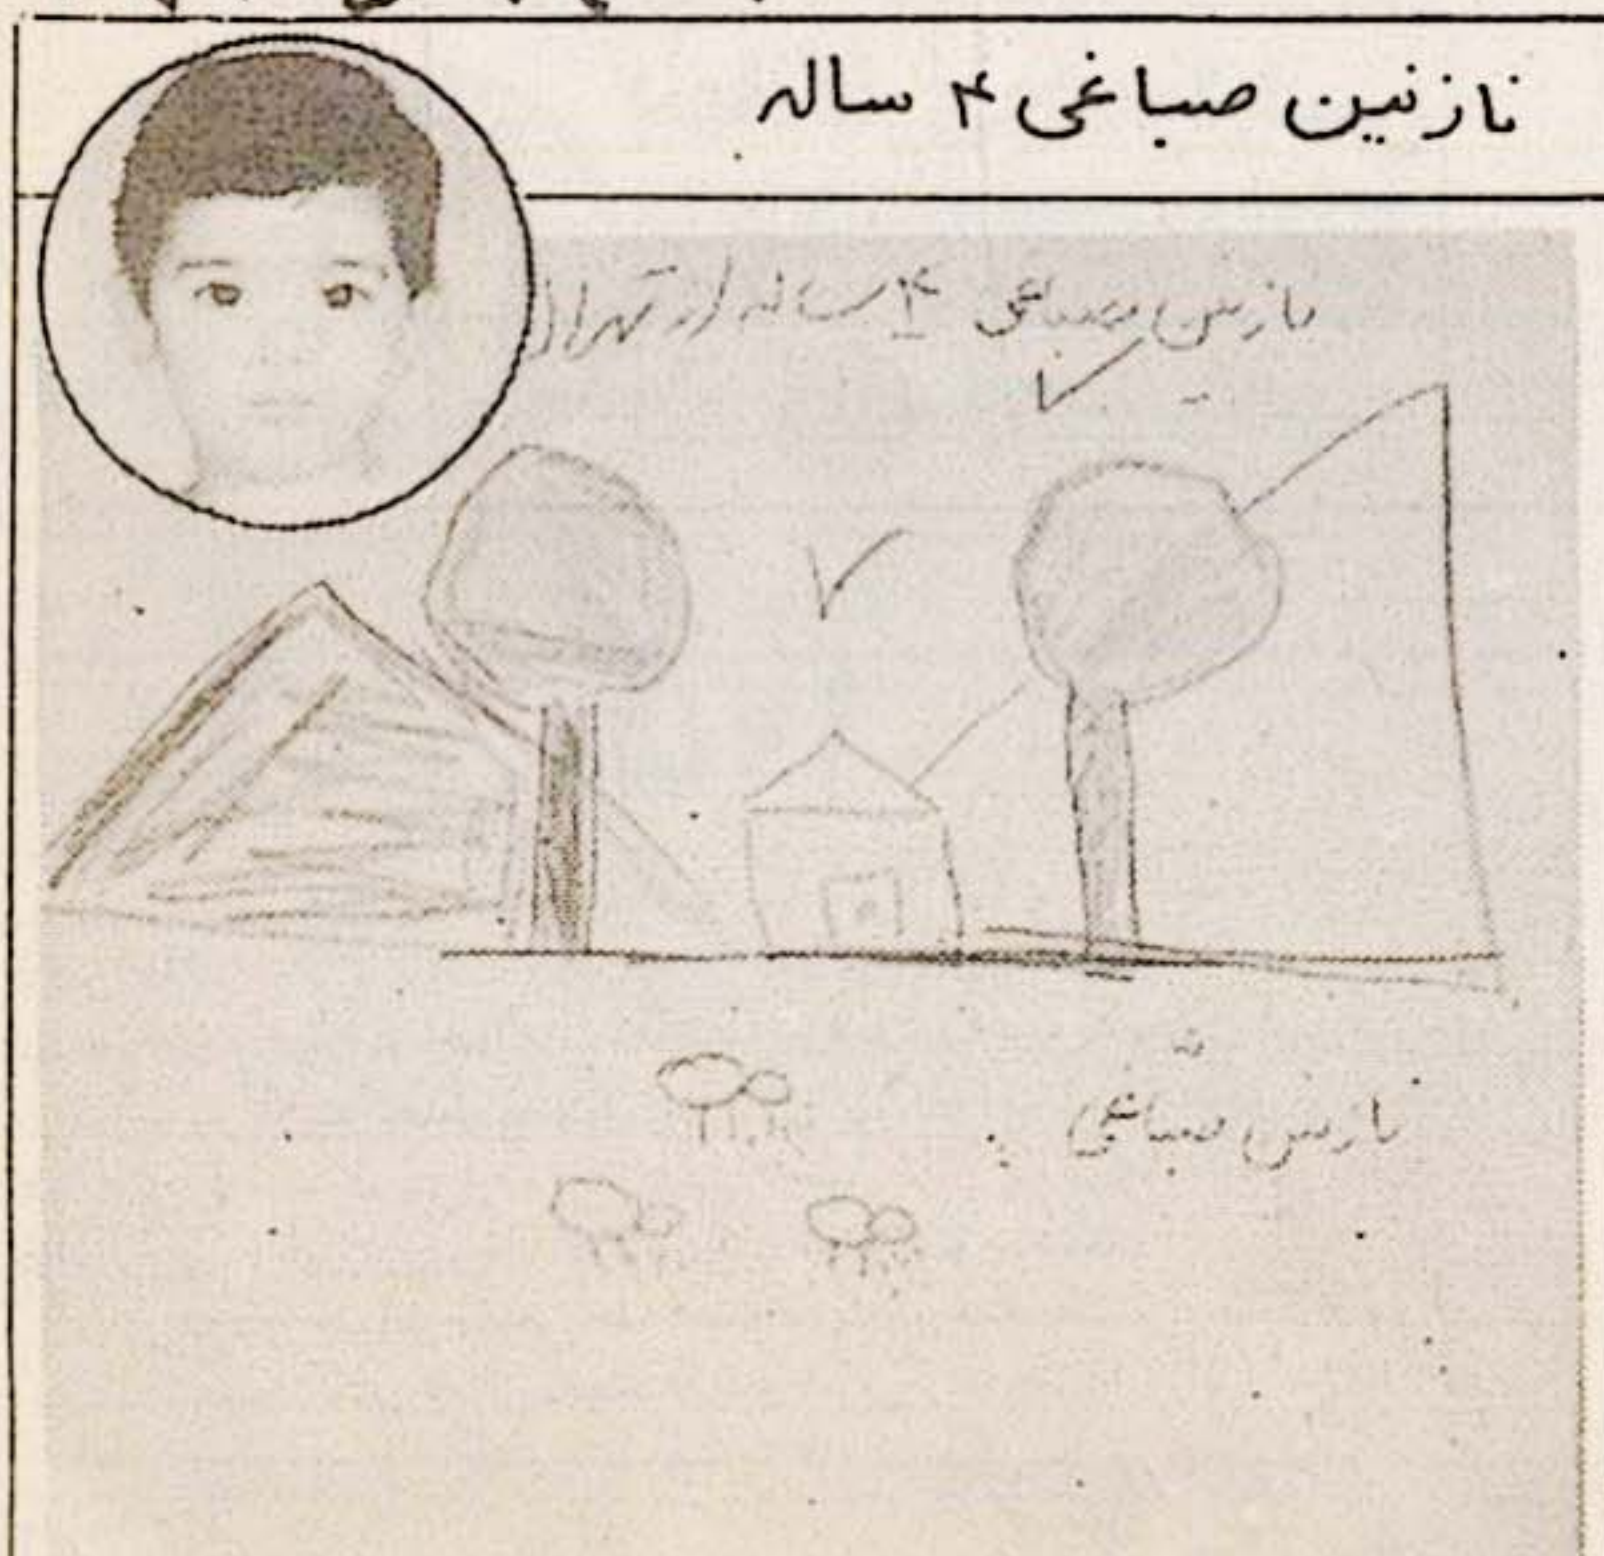 نازنین صباغی ۴ ساله
نازنین صباغی ۴ ساله از تهران
نازنین صباغی